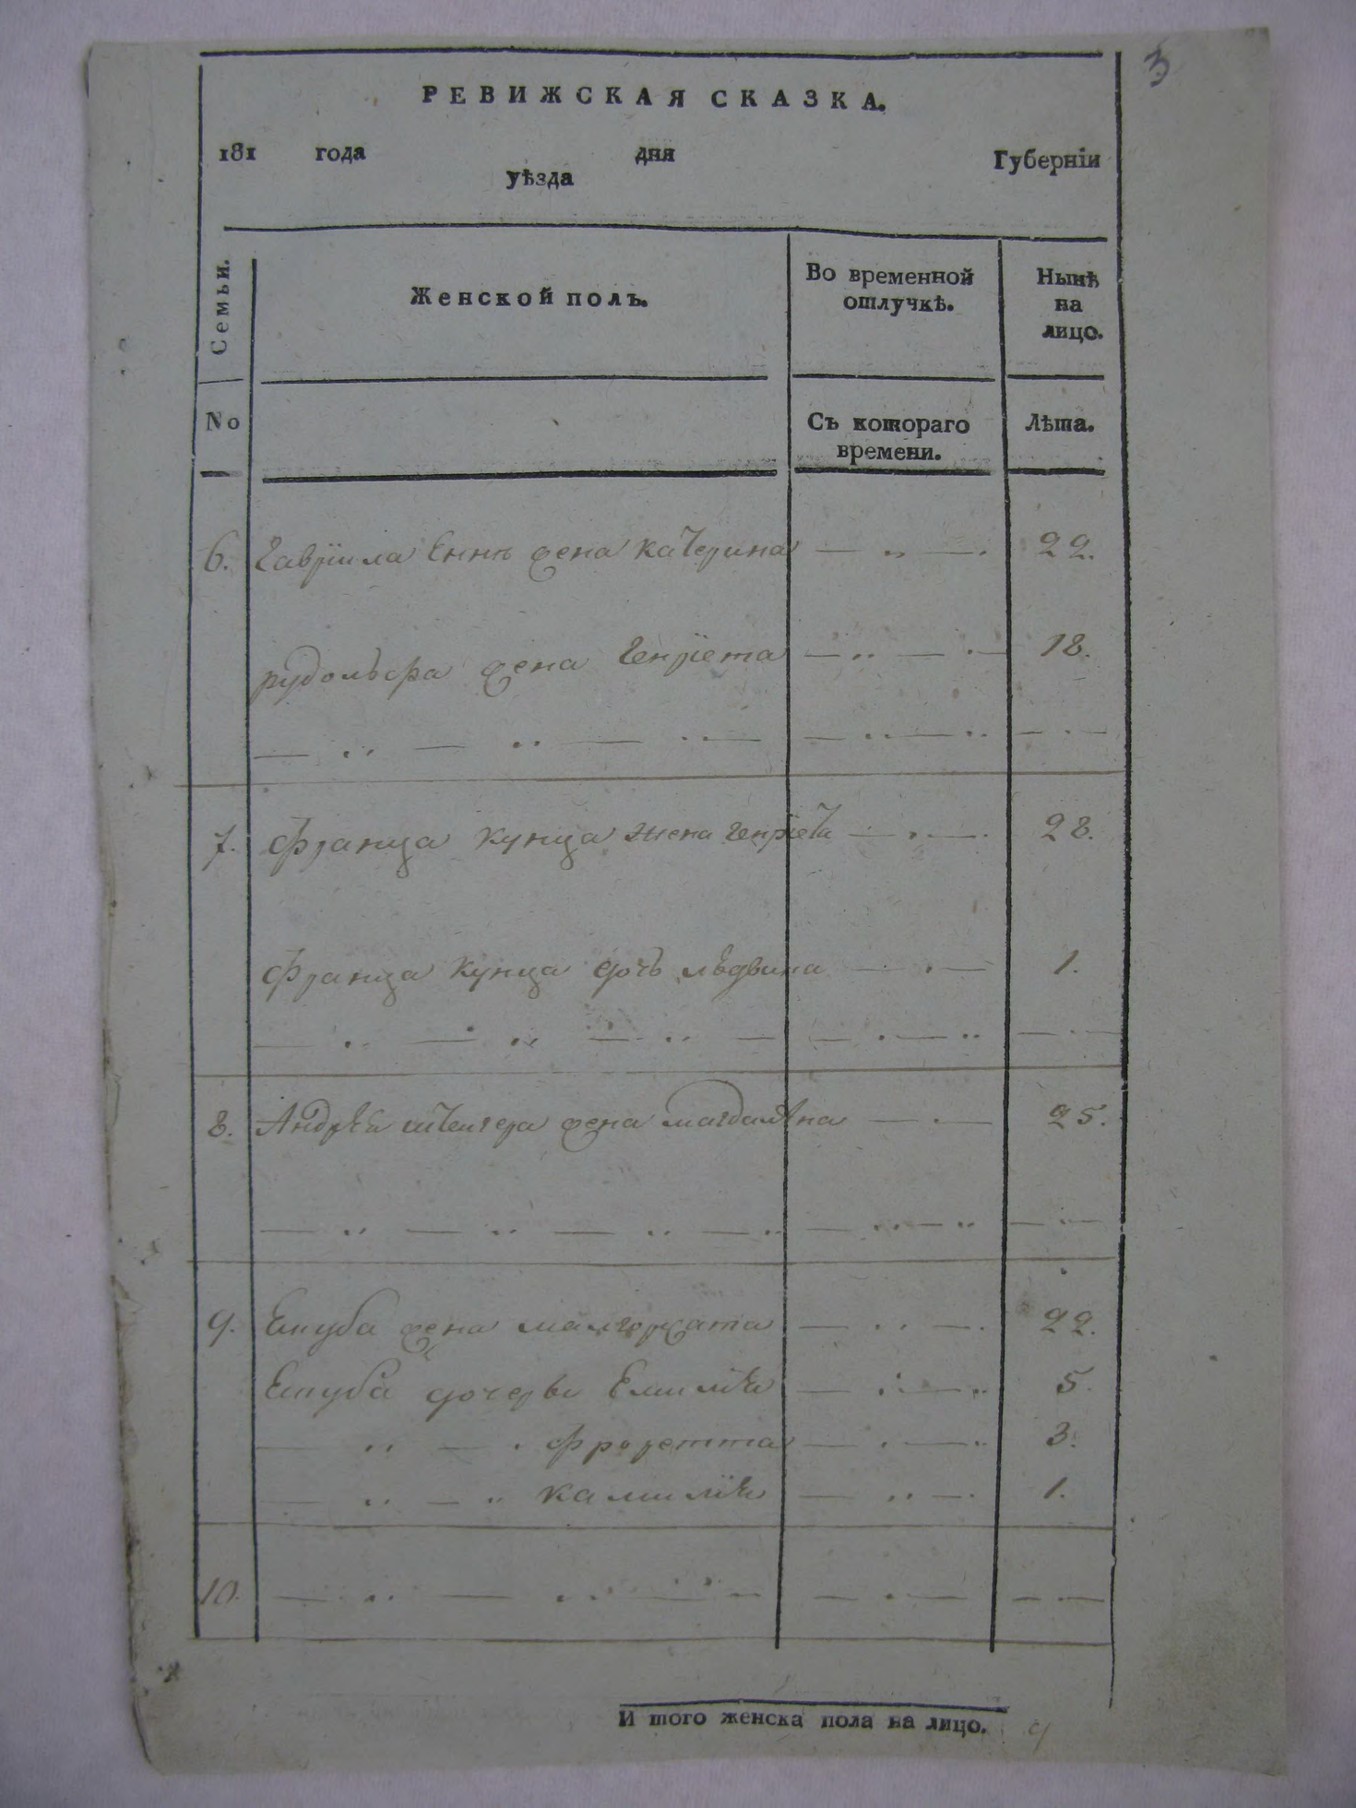 3
РЕВИЖСКАЯ СКАЗКА.
181 года дня Губерніи
уѣзда
Семьи. Женской полъ. Во временной отлучкѣ. Нынѣ на лицо.
No Съ котораго времени. Лѣта.
6. Гавріила Еннъ жена Катерина — „ — . 22.
рудольфа жена Генріета — „ — . — 18.
7. Франца Кунца жена Генріета — . — . 28.
Франца Кунца дочь лѣдвина — . — 1.
8. Андрѣя жена магдалѣна — . — 25.
9. Якуба жена малгоржата — „ — . 22.
Якуба дочери Емилія — . — „ 5.
— „ — . Фроретта — . — . 3.
— „ — „ камилія — „ — . 1.
10. — „ —
И того женска пола на лицо. 9